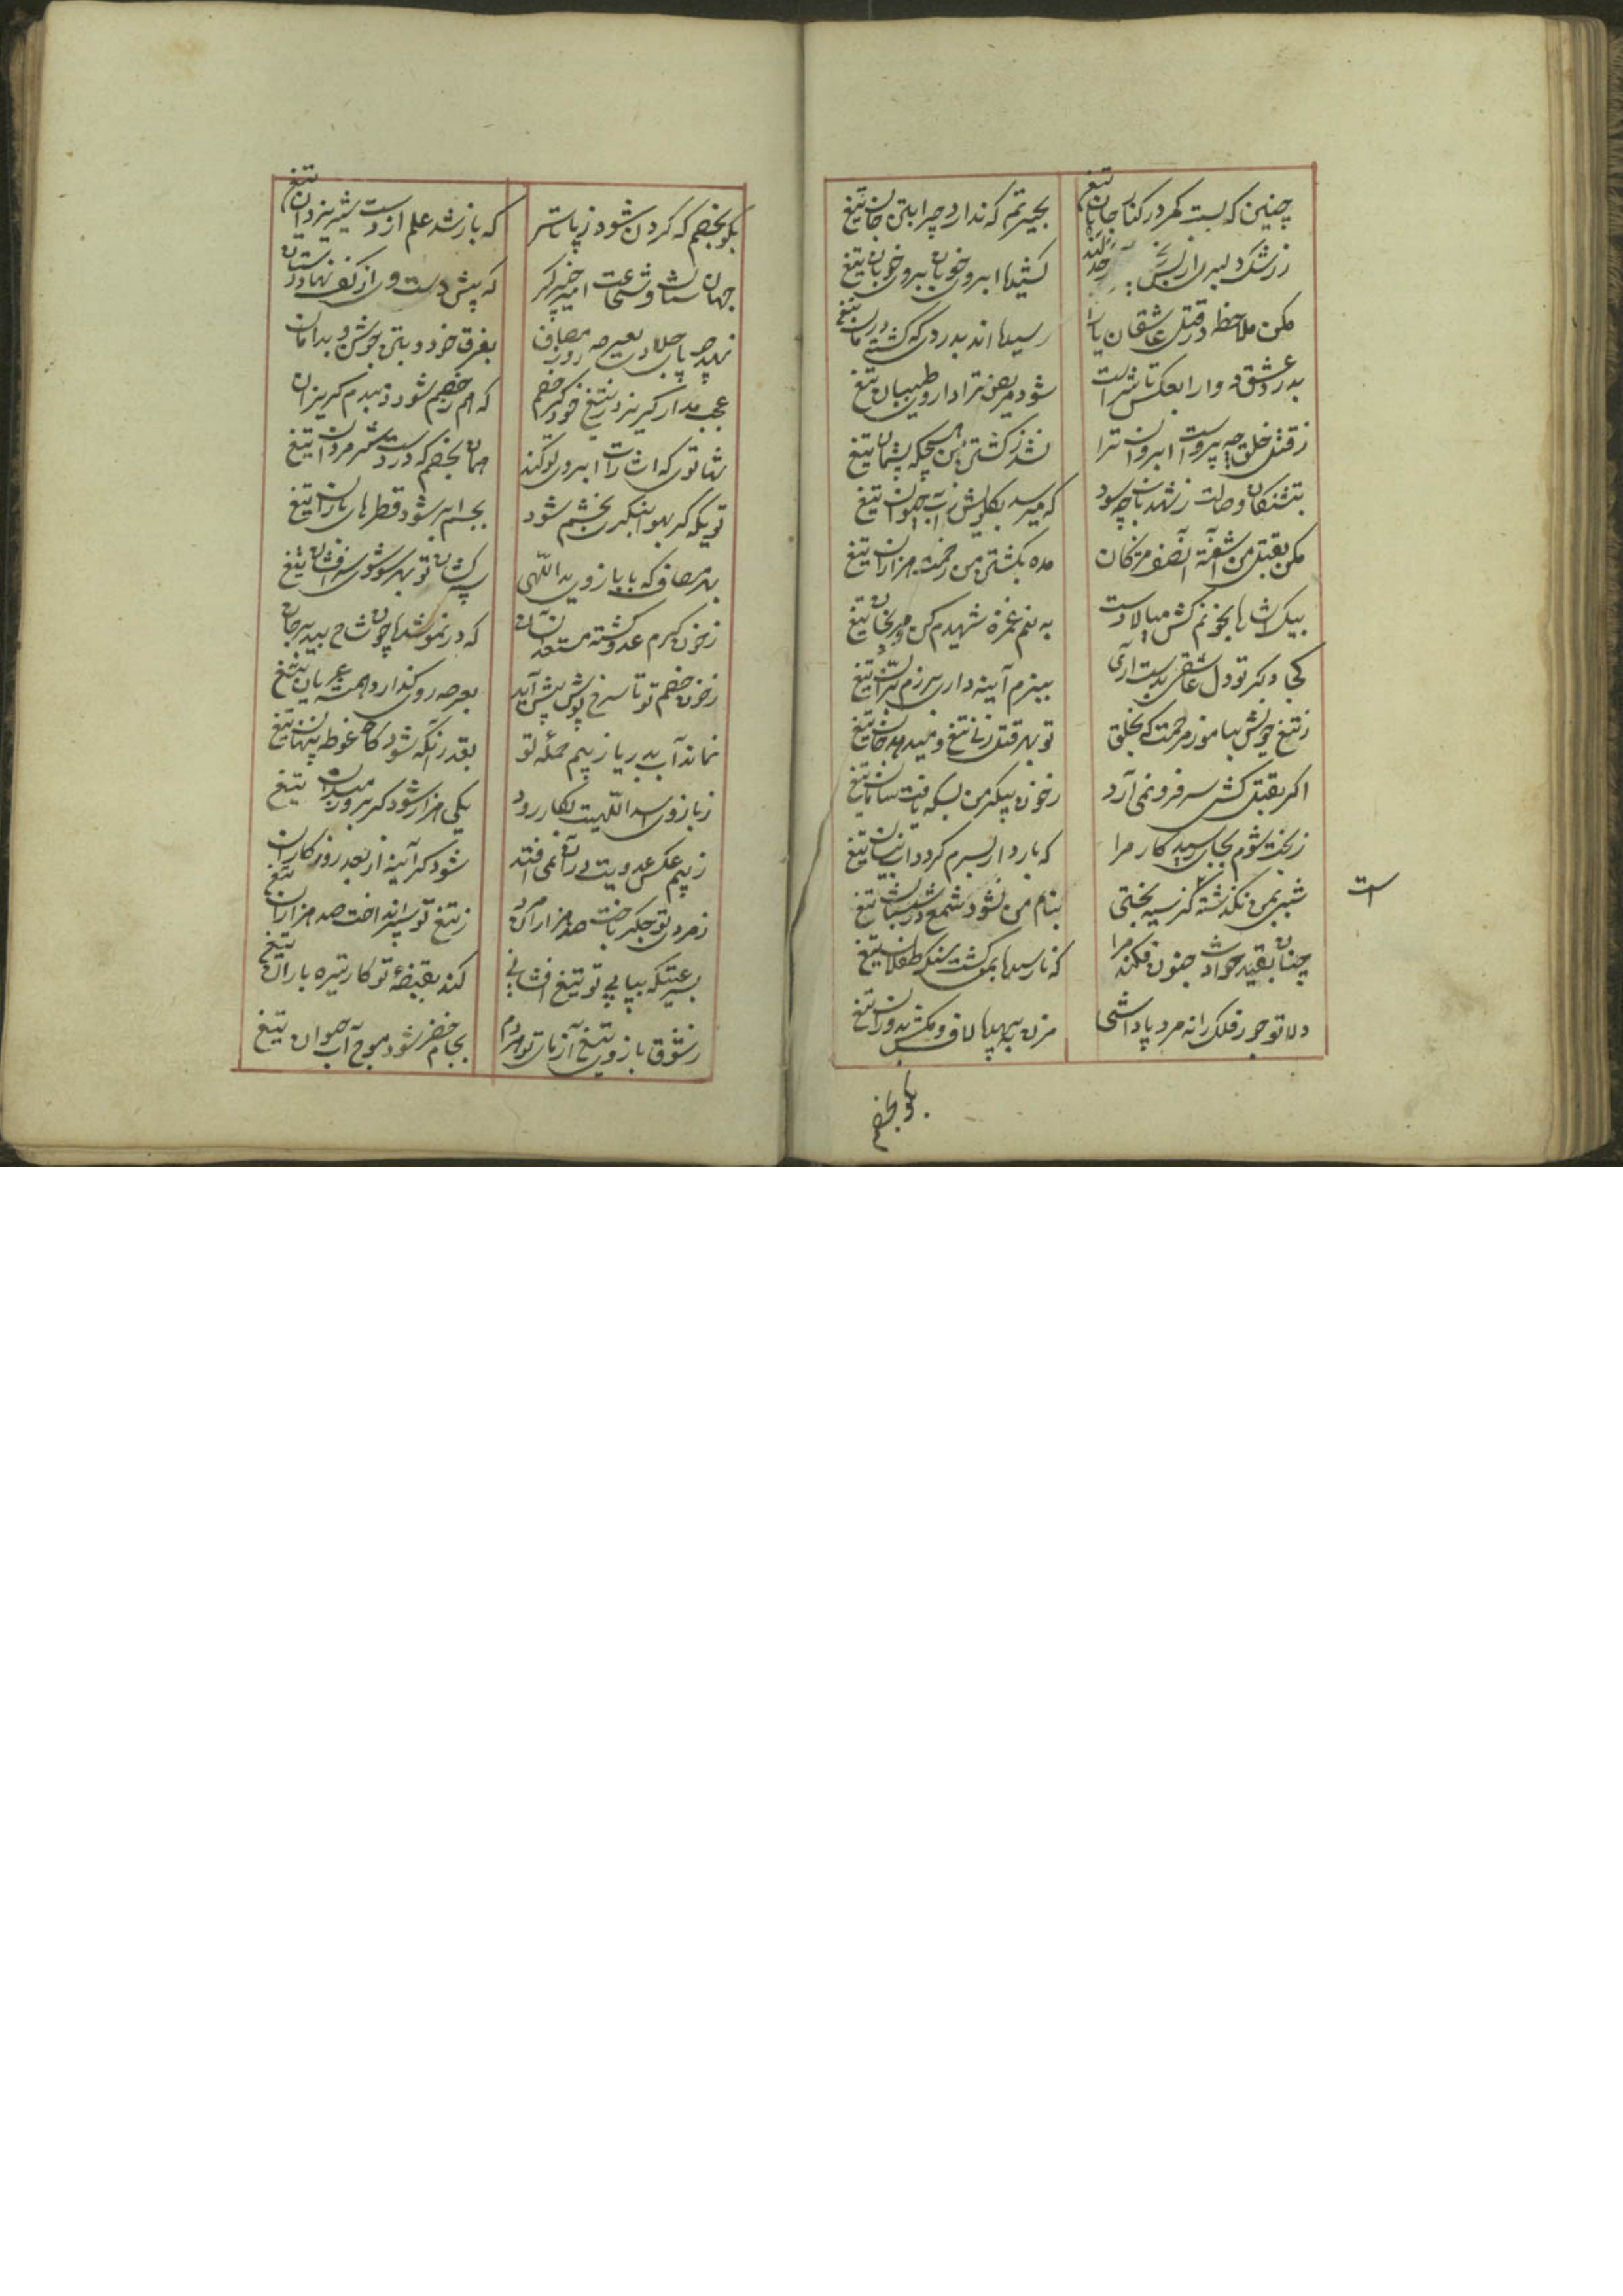 چنین که بست کمر در کنار جانان تیغ
بحیرتم که ندارد چرا بتن جان تیغ
ز رشک دلبری از بس
کشیده ابروی خوبان بروی خوبان تیغ
مکن ملاحظه در قتل عاشقان یارا
رسیده اند بدردی که گشته درمان تیغ
بدرد عشق دوا را بعکس تاثیر است
شود مریض ترا داروی طبیبان تیغ
ز قتل خلق چه پرواست ابروان ترا
نشد ز کشتن من هیچکه پشیمان تیغ
بتشنکان وصالت ز شهد ناب چه سود
که میرسد بکلویش ز آب حیوان تیغ
مکن بقتل من آشفته آن صف مژکان
مده بکشتن من زحمت هزاران تیغ
بیک اشاره بخونم کش میالا دست
به نیم غمزه شهیدم کن و مرنجان تیغ
کجا دکر تو دل عاشقی بدست آری
ببزم آینه داری برزم بران تیغ
ز تیغ خویش بیاموز مرحمت که بخلق
تو بهر قتل زنی تیغ و میدهد جان تیغ
اکر بقتل کشی سر فرو نمی آرد
ز خون پیکر من بسکه یافت سامان تیغ
ز بخت شوم بجایی رسید کار مرا
که بارد ار بسرم کردد آب نیسان تیغ
شبی بمن نکذشته کز سیه بختی
بنام من نشود شمع در شبستان تیغ
چنان بقید حوادث جنون فکند مرا
که نارسیده بمن کشت سنک طفلان تیغ
دلا تو جور فلک را نه مرد پاداشی
مزن بیهده لاف و مکش بدوران تیغ
است
بکو بخصم
بکو بخصم که کردن شود ز پا تا سر
که باز شد علم از دست شیر یزدان تیغ
جهان ستان شجاعت امیر خیبر کیر
که پیش دست وی از کف نهاد دستان
نهد چو پای جلادت بعرصه روز مصاف
بفرق خود و بتن جوشن و بدامان
عجب مدار کریزد ز تیغ خود کر خصم
که هم ز خصم شود در نبردم کریزان
بشانوی که اشارات ابروی تو کند
همان بخصم که در دست شیر مردان تیغ
تویکه کر بهوا بنکری بخشم شود
بجسم ابر شود قطرهای باران تیغ
بهر مصاف که با بازوی ید اللهی
کشان تو بهر سو شوی سرافشان تیغ
ز خون کرم عدو کشته مستعد آنسان
که در نمو شده چون شاخ بید مرجان
ز خون خصم تو تا سرخ پوش پیش آید
بعرصه رو نکذارد همیشه عریان تیغ
نماند آب بدریا ز بیم حمله تو
بقدر آنکه شود کاه غوطه پنهان تیغ
ز بازوی اسد اللهیت بکار رود
یکی هزار شود کر بروز میدان تیغ
ز بیم عکس عدویت در آن نمی افتد
شود کر آینه از بعد روزکاران تیغ
ز مردی تو جکر باخت صد هزاران مرد
ز تیغ تو سپر انداخت صد هزاران تیغ
بسرعتیکه بیاپی تو تیغ افشانی
کند بقبضه تو کار تیره باران تیغ
ز شوق بازوی تیغ آزمای تو هر دم
بجام خضر شود موج آب حیوان تیغ